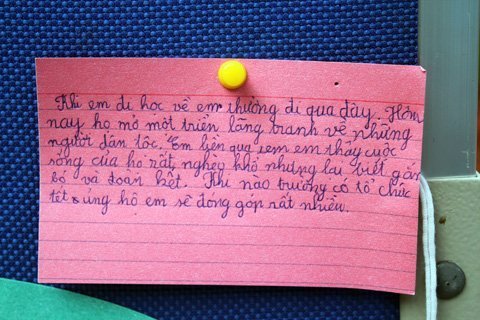 Khi em đi học về em thường đi qua đây. Hôm
nay họ mở một triển lãng tranh về những
người dân tôc. Em liền qua xem em thấy cuộc
sống của họ rất nghèo khổ nhưng lại biết gắn
bó và đoàn kết. Khi nào trường có tổ chức
tết ủng hộ em sẽ đóng góp rất nhiều.